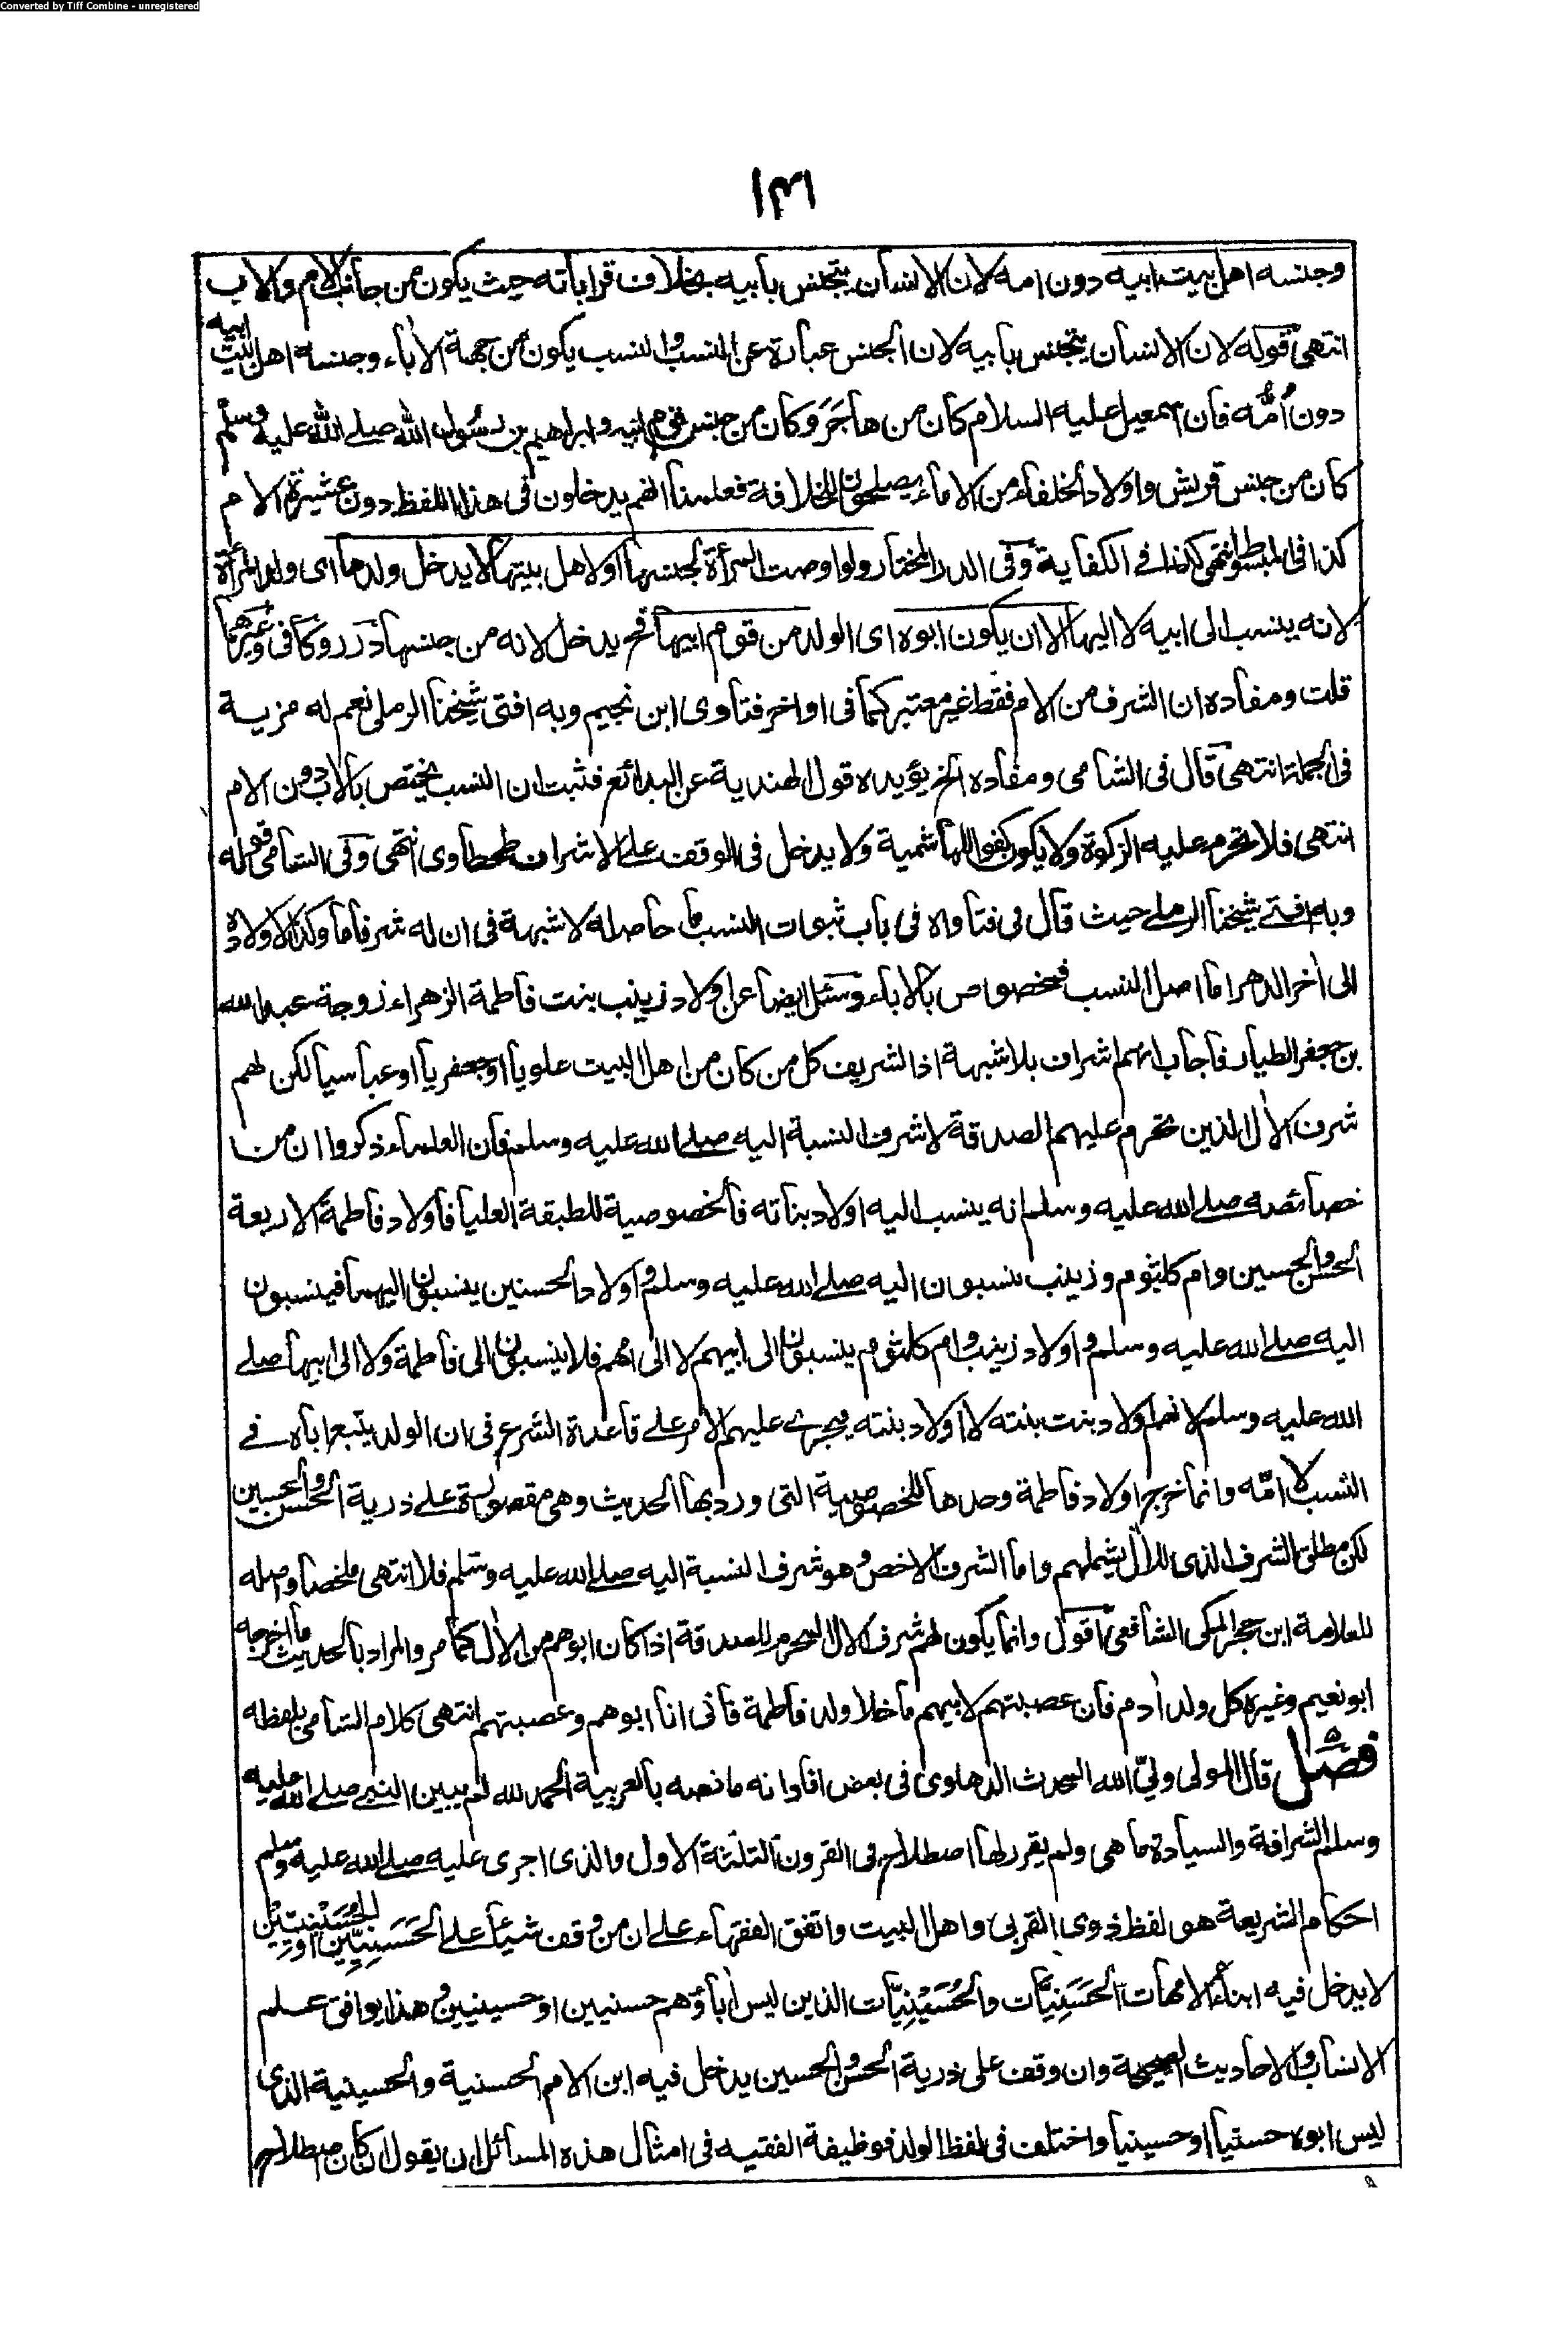 Converted by Tiff Combine - unregistered
١٣١
وجنسه اهل بيت ابيه دون امه لان الانسان يتجنس بابيه بخلاف قراباته حيث يكون من جانب الام والاب
انتهى قوله لان الانسان يتجنس بابيه لان الجنس عبارة عن النسب والنسب يكون من جهة الاباء وجنسه اهل بيت ابيه
دون اُمّه فان اسمعيل عليه السلام كان من هاجَرَ وكان من جنس قوم ابيه وابراهيم بن رسول الله صلے الله عليه وسلم
كان من جنس قريش واولاد الخلفاء من الاماء يصلحون للخلافة فعلمنا انهم يدخلون فى هذا اللفظ دون عشيرة الام
كذا فى المبسوط انتهى كذا فے الكفاية وفى الدر المختار ولو اوصت المرأة لجنسها او لاهل بيتها لا يدخل ولدها اى ولد المرأة
لانه ينسب الى ابيه لا اليها الا ان يكون ابوه اى الولد من قوم ابيها فح يدخل لانه من جنسها درر وكافى وغيرهما
قلت ومفاده ان الشرف من الام فقط غير معتبر كما فى اواخر فتاوى ابن نجيم وبه افتى شيخنا الرملى نعم له مزية
فى الجملة انتهى قال فى الشامى ومفاده الخ يؤيده قول الهندية عن البدائع فثبت ان النسب يختص بالاب دون الام
انتهى فلا تحرم عليه الزكوة ولا يكون كفوا للهاشمية ولا يدخل فى الوقف على الاشراف طحطاوى انتهى وفى الشامى قوله
وبه افتے شيخنا الرملے حيث قال فى فتاواه فى باب ثبوت النسب ما حاصله لا شبهة فى ان له شرفا ما وكذا لاولاده
الى اٰخر الدهر اما اصل النسب فمخصوص بالاباء وسئل ايضا عن اولاد زينب بنت فاطمة الزهراء زوجة عبد الله
بن جعفر الطيار فاجاب انهم اشراف بلا شبهة اذ الشريف كل من كان من اهل البيت علويا او جعفريا او عباسيا لكن لهم
شرف الاٰل الذين تحرم عليهم الصدقة لا شرف النسبة اليه صلے الله عليه وسلم فان العلماء ذكروا ان من
خصائصه صلے الله عليه وسلم انه ينسب اليه اولاد بناته فالخصوصية للطبقة العليا فاولاد فاطمة الاربعة
الحسن والحسين وام كلثوم وزينب ينسبون اليه صلے الله عليه وسلم واولاد الحسنين ينسبون اليهما فينسبون
اليه صلے الله عليه وسلم واولاد زينب وام كلثوم ينسبون الى ابيهم لا الى امهم فلا ينسبون الى فاطمة ولا الى ابيها صلے
الله عليه وسلم لانهم اولاد بنت بنته لا اولاد بنته فيجرے عليهم الامر علے قاعدة الشرع فى ان الولد يتبع اباه فے
النسب لا امّه وانما خرج اولاد فاطمة وحدها للخصوصية التى ورد بها الحديث وهى مقصورة علے ذرية الحسن والحسين
لكن مطلق الشرف الذى للاٰل يشملهم واما الشرف الاخص وهو شرف النسبة اليه صلے الله عليه وسلم فلا انتهى ملخصا واصله
للعلامة ابن حجر المكى الشافعى اقول وانما يكون لهم شرف الال المحرم للصدقة اذا كان ابوهم من الاٰل كما مر والمراد بالحديث ما اخرجه
ابو نعيم وغيره كل ولد اٰدم فان عصبتهم لابيهم ما خلا ولد فاطمة فانى انا ابوهم وعصبتهم انتهى كلام الشامى بلفظه
فصل قال المولى ولىّ الله المحدث الدهلوى فى بعض افاداته ما نصه بالعربية الحمد لله لم يبين النبے صلے الله عليه
وسلم الشرافة والسيادة ما هى ولم يقرر لها اصطلاح فى القرون الثلثة الاول والذى اجرى عليه صلے الله عليه وسلم
احكام الشريعة هو لفظ ذوى القربى واهل البيت واتفق الفقهاء علے ان من وقف شيئا علے الحَسَنِيِّين اور الحُسَيْنِيّيْن
لا يدخل فيه ابناء الامهات الحَسَنِيَّات والحُسَيْنِيَّات الذين ليس اٰباؤهم حسنيين او حسينيين وهذا يوافق علم
الانساب والاحاديث الصحيحة وان وقف على ذرية الحسن والحسين يدخل فيه ابن الام الحسنية والحسينية الذى
ليس ابوه حسنيا او حسينيا واختلف فى لفظ الولد فوظيفة الفقيه فى امثال هذه المسائل ان يقول ان كان اصطلاح